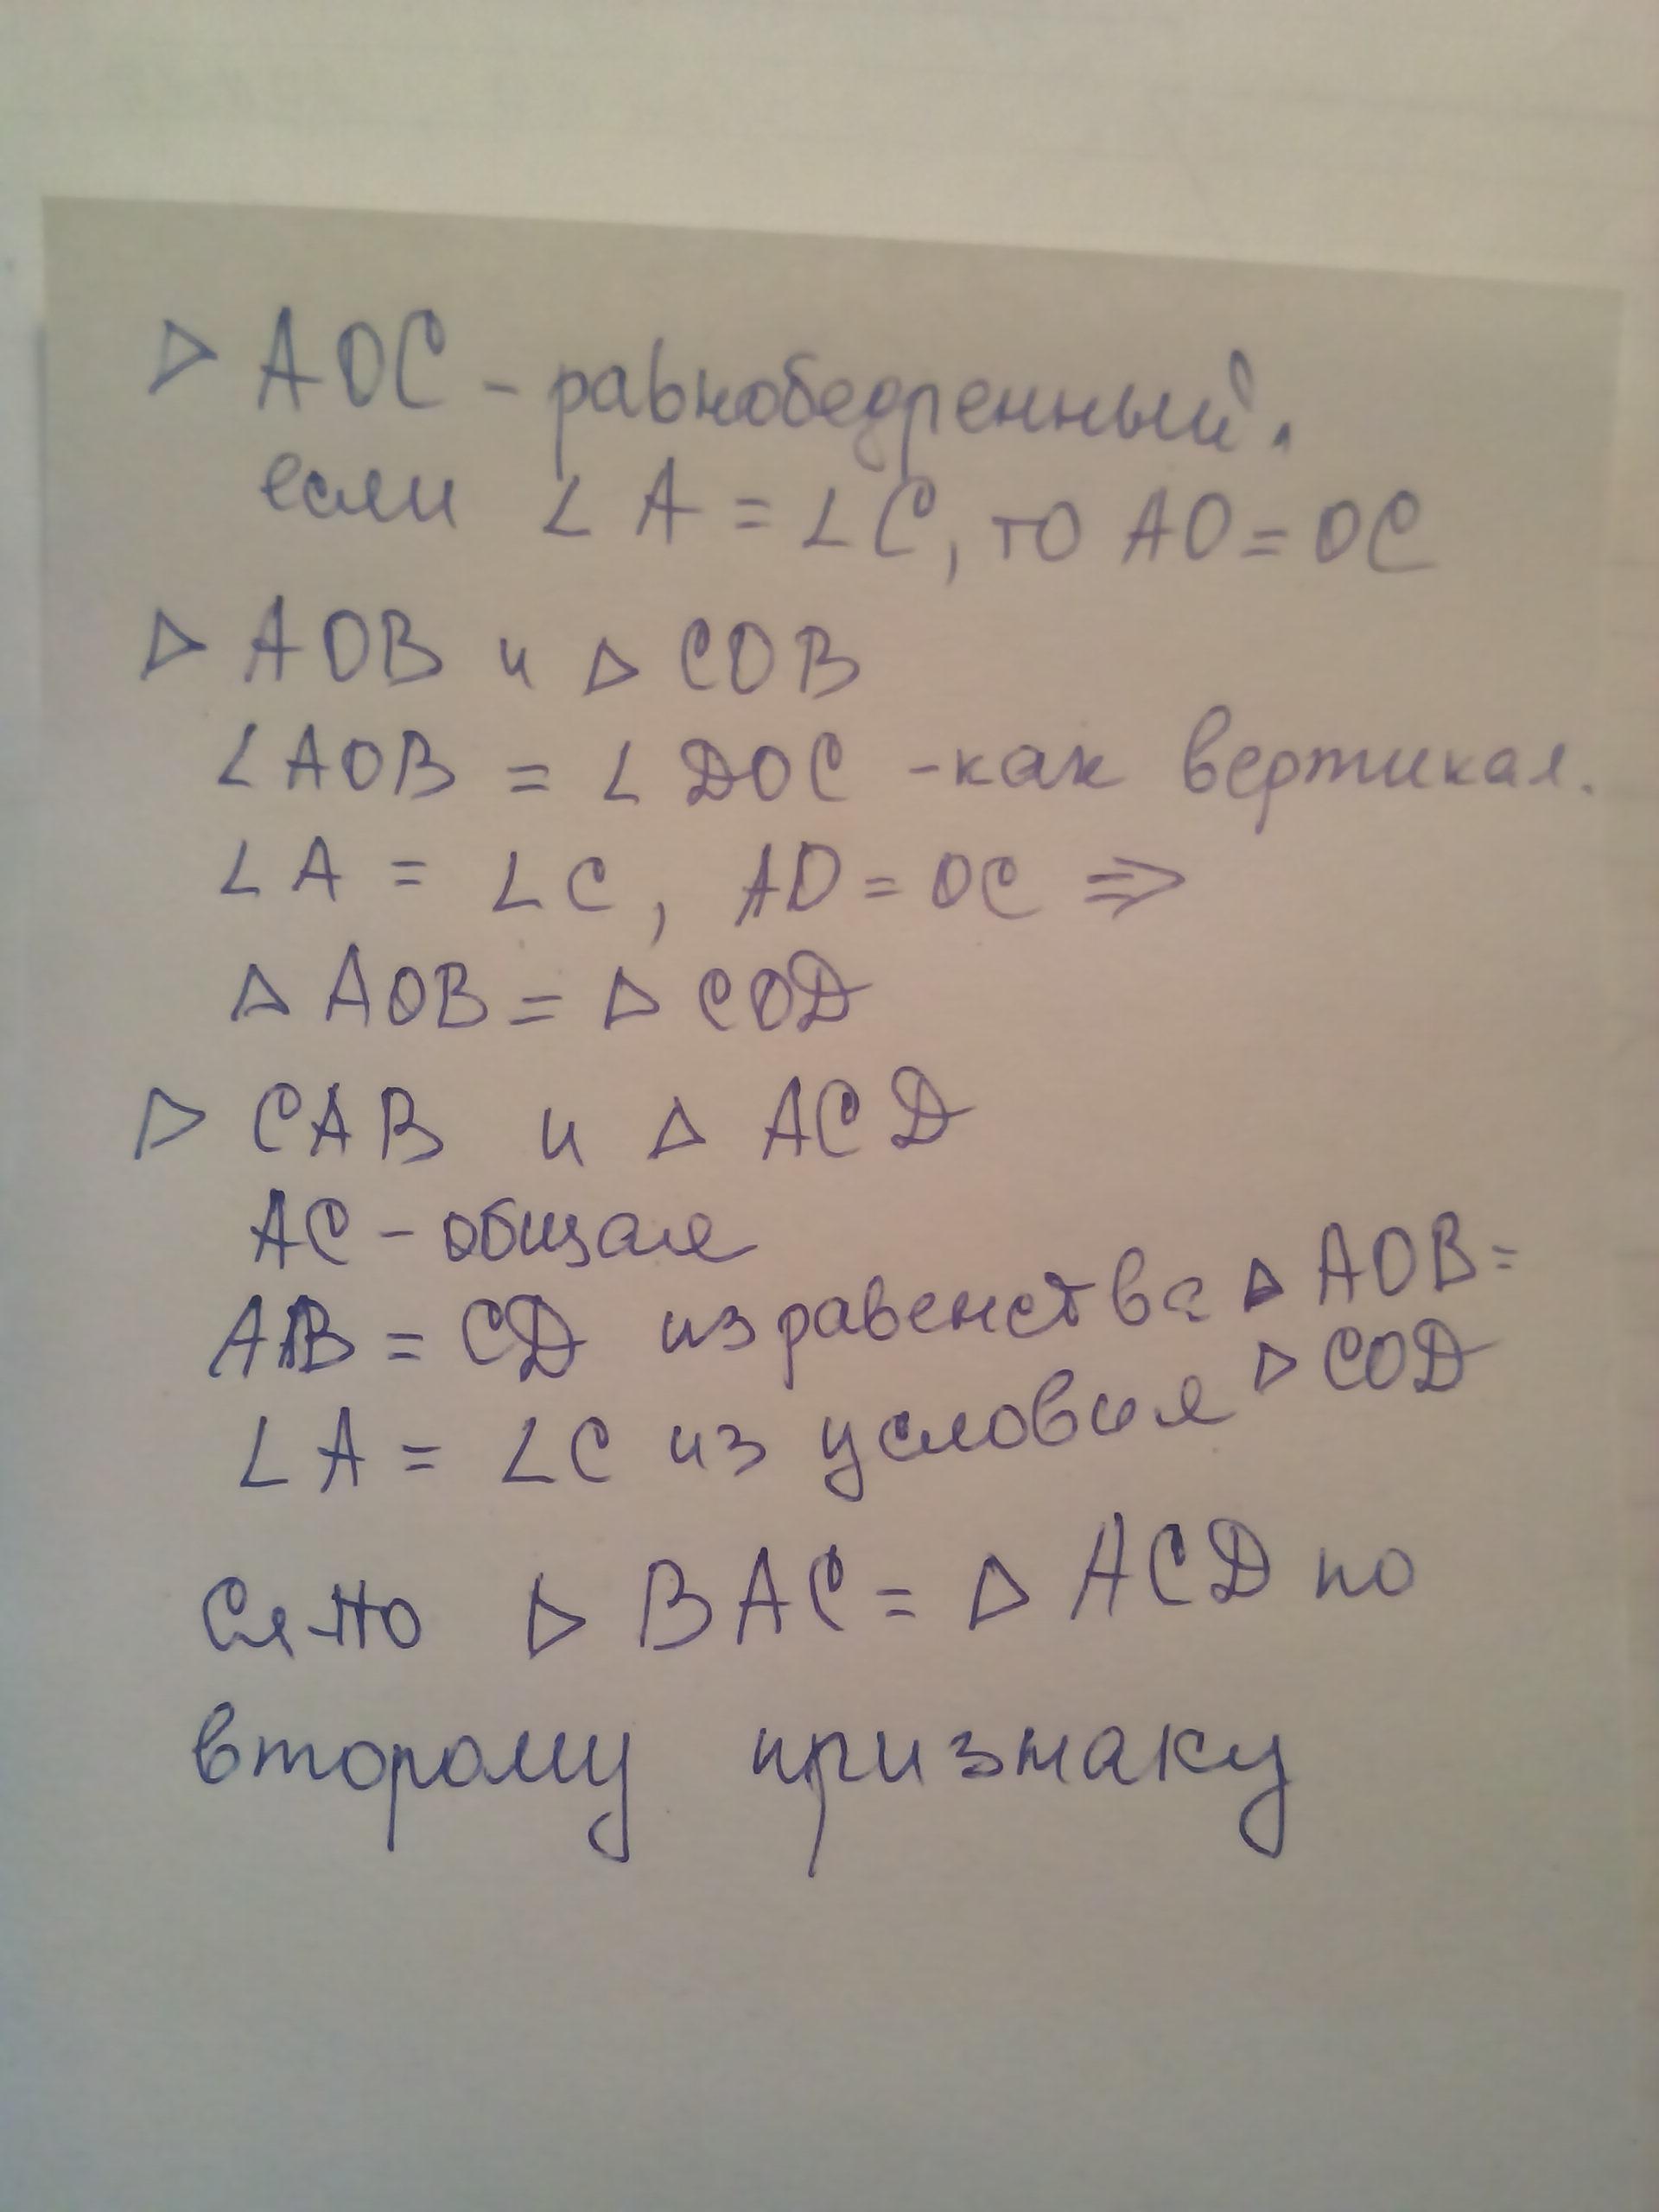 ▷ AOC - равнобедренный.
если ∠ A = ∠ C, то AO = OC
▷ AOB и ▷ COB
∠ AOB = ∠ DOC - как вертикал.
∠ A = ∠ C, AO = OC ⇒
△ AOB = ▷ COD
▷ CAB и △ ACD
AC - общая
AB = CD из равенства ▷ AOB =
▷ COD
∠ A = ∠ C из условия
сл-но ▷ BAC = ▷ ACD по
второму признаку